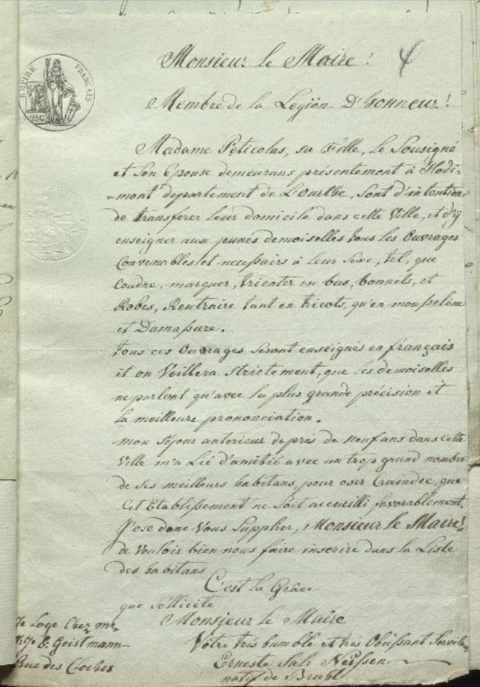 EMPIRE FRANÇAIS
25C
Monsieur le Maire!
Membre de la Legion D'honneur!
Madame Peticolas, sa fille, Le Sousigné
et son Epouse demeurans présentement à Hodi-
mont departement de L'Ourthe, sont d'intention
de transferer leur domicile dans cette Ville, et d'y
enseigner aux jeunes demoiselles tous les Ouvrages
Convenables et necessairs à leur Sexe, tel que
Coudre, marquer, tricoter en bas, bonnets, et
Robes, Rentraire tant en tricots, qu'en mousseline
et Damassure.
tous ces Ouvrages seront enseignés en français
et on Veillera strictement, que ces demoiselles
ne parlent qu'avec la plus grande précision et
la meilleure prononciation.
mon sejour anterieur de près de neuf ans dans cette
Ville m'a Lié d'amitié avec un trop grand nombre
de ses meilleurs habitans, pour oser Craindre, que
cet Etablissement ne soit accueilli favorablement.
J'ose donc Vous Supplier, Monsieur le Maire!
de vouloir bien nous faire inscrire dans la Liste
des habitans
C'est la Grâce
que sollicite
Monsieur le Maire
Votre très humble et très Obéissant
Erneste
natif de Bruhl
Je Loge Chez
E. Geistmann
Rue des